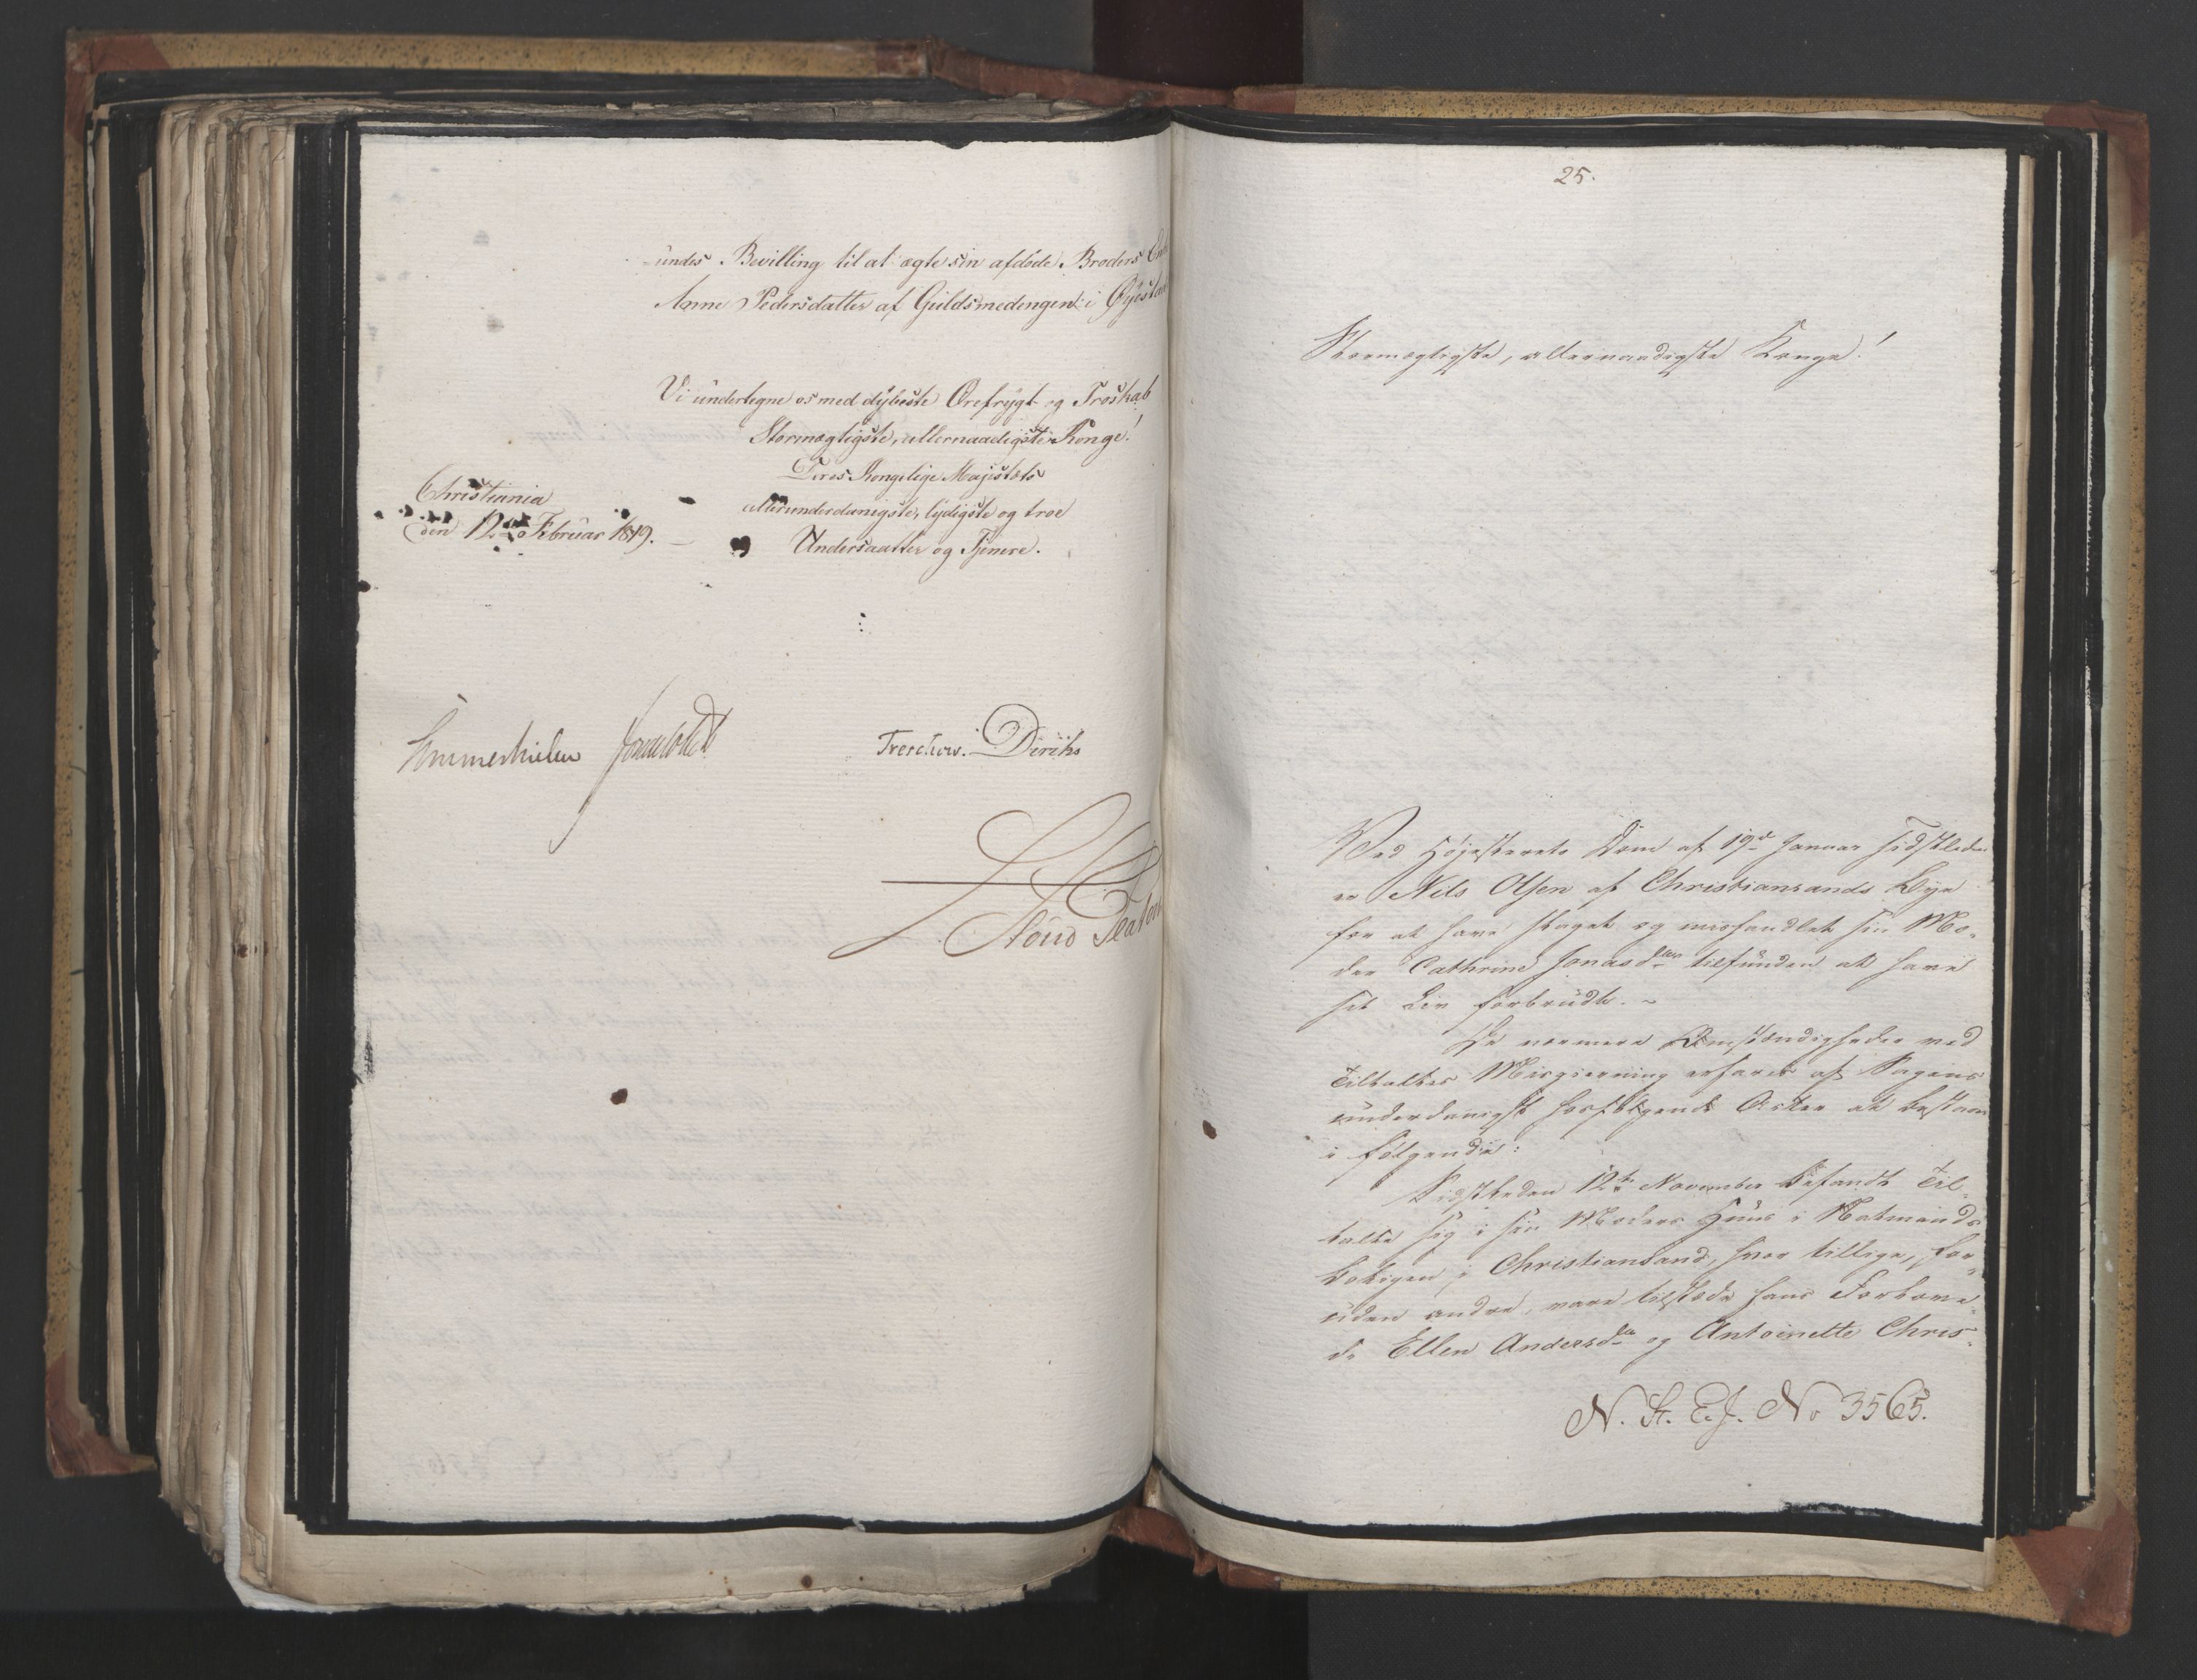 undes Bevilling til at ægte sin afdøde Broders
Anne Pedersdatter af Guldsmedengen i Øyestad
Vi undertegne os med dybeste Ærefrygt og Troskab
Stormægtigste, allernaadigste Konge!
Deres Kongelige Majestæts
allerunderdanigste, lydigste og troe
Undersaatter og Tjenere.
Christiania
den 12te Februar 1819.
Sommerhielm
Treschow. Diriks
25.
Stormægtigste, allernaadigste Konge!
Ved Høiesterets Dom af 19de Januar sidstleden
er Nils Olsen af Christiansands Bye
for at have slaget og mishandlet sin Mo-
der Cathrine Jonasdatter tilfunden at have
sit Liv forbrudt. ~
De nærmere Omstændigheder ved
Tiltaltes Misgierning erfares af Sagens
underdanigst hosfølgende Acter at bestaae
i følgende:
Sidstleden 12te November befandt Til-
talte sig i sin Moders Huus i
Christiansand, hvor tillige, for-
uden andre, vare tilstede hans Forlove-
de Ellen Andersdr og Antoinette Chris-
N. St. E. J. No 3565.